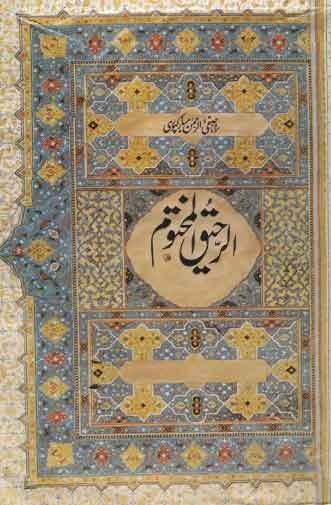 صفی الرحمٰن مبارکپوری
الرحیق المختوم